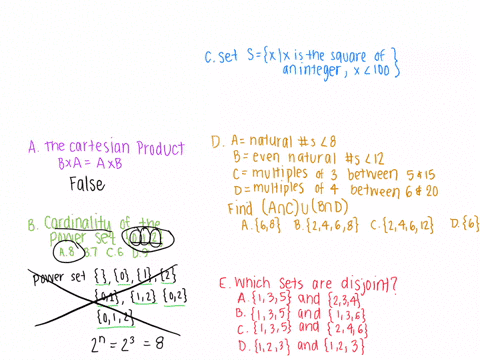 C. Set S={x|x is the square of
an integer, x<100}
A. the Cartesian Product
B×A = A×B
False
B. Cardinality of the
power set {0,1,2}
A.8 B.7 C.6 D.9
power set {}, {0}, {1}, {2}
{0,1}, {1,2} {0,2}
{0,1,2}
2ⁿ = 2³ = 8
D. A= natural #s <8
B= even natural #s <12
C= multiples of 3 between 5 & 15
D= multiples of 4 between 6 & 20
Find (A∩C)∪(B∩D)
A.{6,8} B.{2,4,6,8} C.{2,4,6,12} D.{6}
E. Which sets are disjoint?
A. {1,3,5} and {2,3,4}
B. {1,3,5} and {1,3,6}
C. {1,3,5} and {2,4,6}
D. {1,2,3} and {1,2,3}